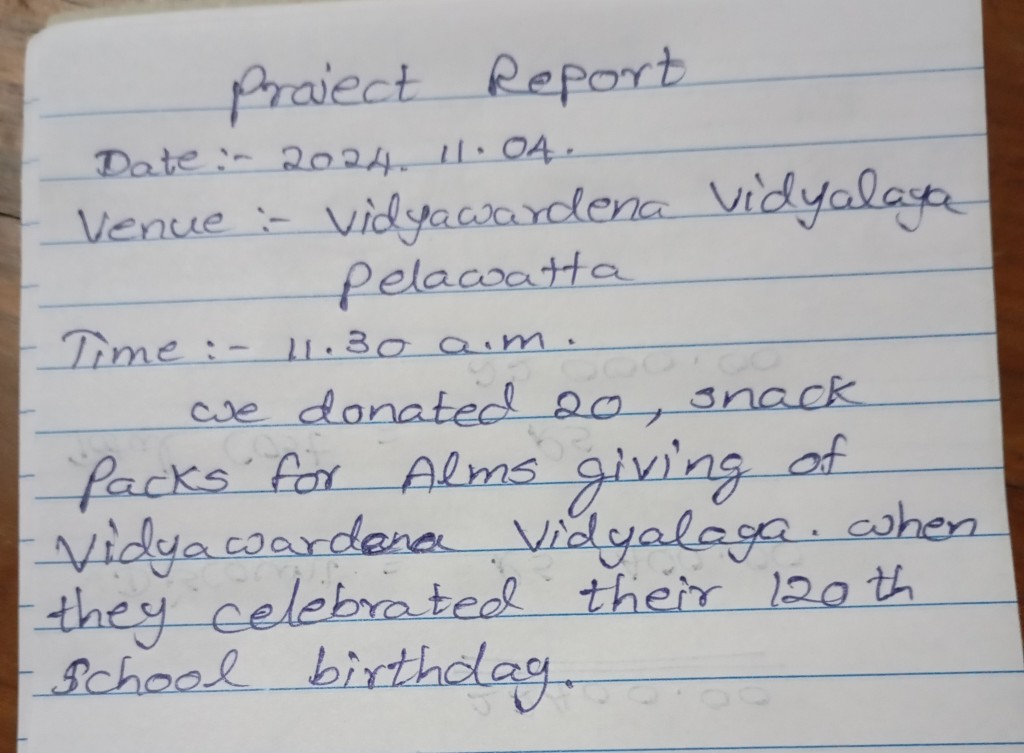 Project Report
Date :- 2024. 11. 04.
Venue :- Vidyawardena Vidyalaya
Pelawatta
Time :- 11.30 a.m.
we donated 20, snack
Packs for Alms giving of
Vidyawardena Vidyalaya. when
they celebrated their 120th
School birthday.